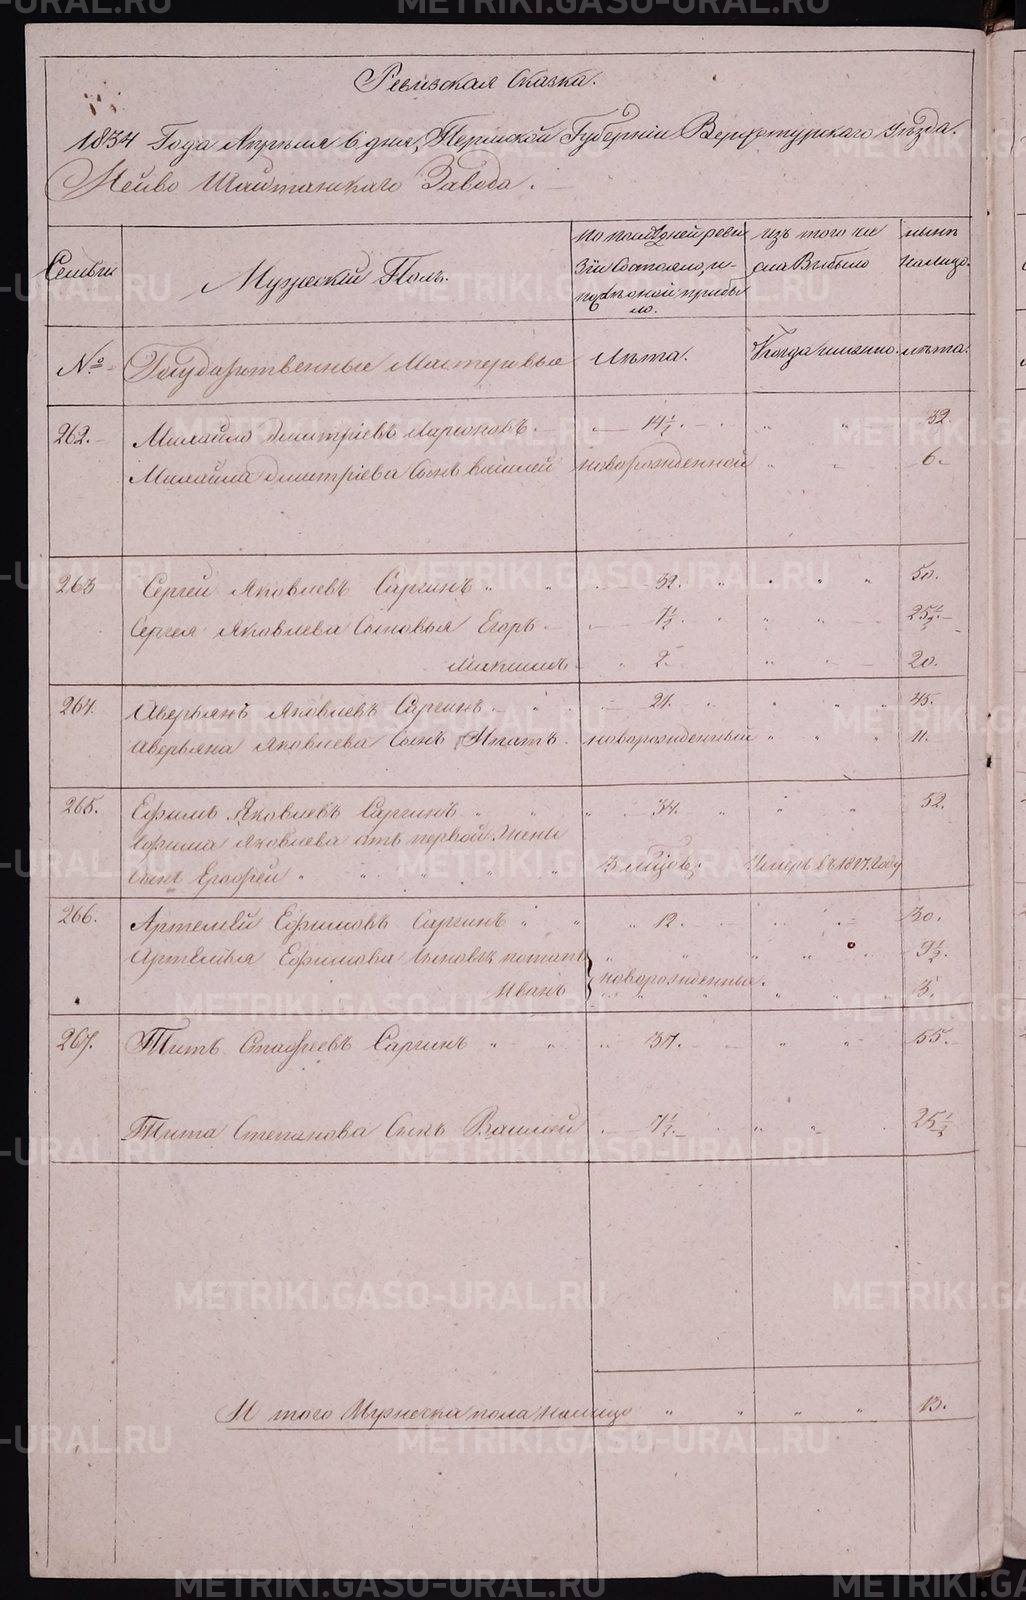 Ревизская Сказка.
1834 Года Апреля 6 дня, Пермской Губернiи Верхотурскаго Уѣзда.
Нейво Шайтанскаго Завода.
Семьи
Мужескiй Полъ.
По последней реви
зiи Состояло, и
после оной прибы
ло.
Изъ того чи
сла Выбыло
нынѣ
налицо.
№
Государственные Мастеровые
Лѣта.
Когда именно.
лѣта.
262. Михайло Дмитрiевъ Ларионовъ. 14½. " " 32.
Михайла Дмитрiева Сынъ Василей новорожденной " " 6.
263 Сергей Яковлевъ Саргинъ " " 32. " " " 50.
Сергея Яковлева Сыновья Егоръ 7½. " " 25½.
Максимъ " 2. " " 20.
264. Аверьянъ Яковлевъ Саргинъ " 21. " " " 45.
Аверьяна Яковлева Сынъ Ипатъ. новорожденный " " " 11.
265. Ефимъ Яковлевъ Саргинъ " " " 34. " " " 52.
Ефима Яковлева отъ первой Жены
Сынъ Ерофей " " " " " 3 мѣсцовъ. Умеръ въ 1817. Году
266. Артемей Ефимовъ Саргинъ " " " 12. " 30.
Артемья Ефимова Сыновья потапъ " " " " " 9½.
новорожденные.
Иванъ " " " " 3.
267. Титъ Стафеевъ Саргинъ " " " 37. " " 55.
Тита Степанова Сынъ Василей 7½. " " 25½
И того Мужеска пола налицо " " " " 13.
METRIKI.GASO-URAL.RU